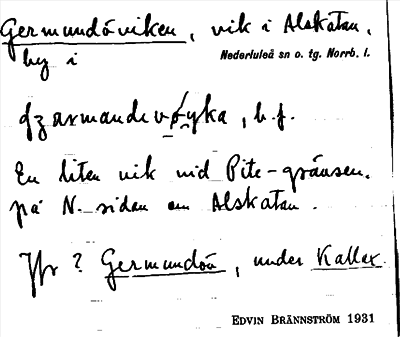 Germundöviken, vik i Alskatan,
by i
Nederluleå sn o. tg. Norrb. l.
b.f.
En liten vik vid Pite-gränsen,
på N. sidan om Alskatan.
Jfr ? Germundön, under Kallax.
EDVIN BRÄNNSTRÖM 1931